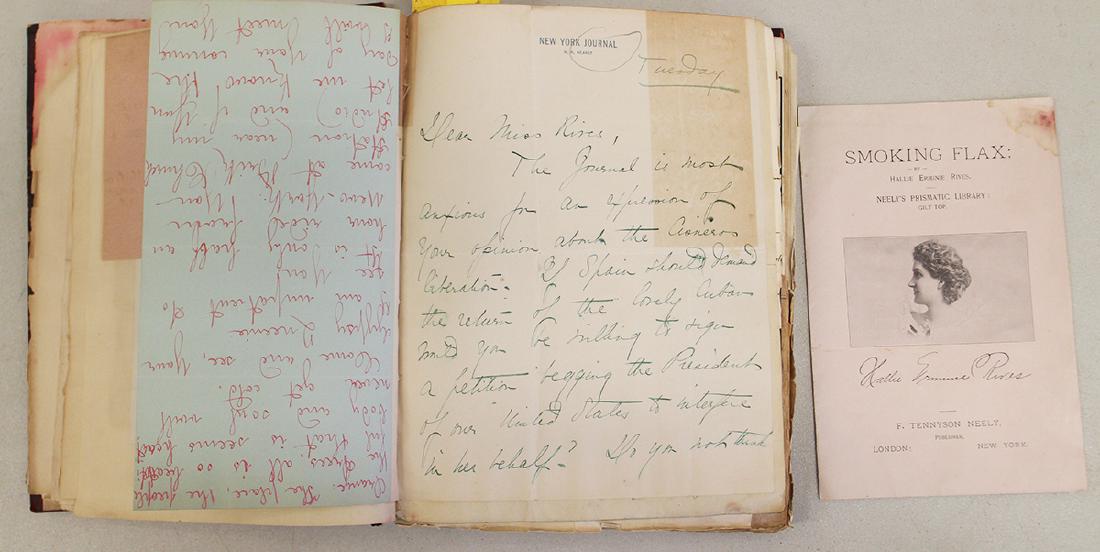 Change. The place, the people
the trees, all is so
but that it seems heart,
body and soul will
never get cold.
Come and see, your
Gypsy Queenie.
I am impatient to
see you.
It is only half an
hour ride
New-York. You
come at Church
station (near my
studio) and if you
let me know the
day of your coming
I shall meet you
NEW YORK JOURNAL
W. R. HEARST
Tuesday
Dear Miss Rives,
The Journal is most
anxious for an expression of
your opinion about the Cisneros
liberation. If Spain should demand
the return of the lovely Cuban
would you be willing to sign
a petition begging the President
of our United States to interfere
in her behalf? Do you not think
SMOKING FLAX:
— BY —
HALLIE ERMINIE RIVES.
NEELY'S PRISMATIC LIBRARY:
GILT TOP.
Hallie Erminie Rives
F. TENNYSON NEELY,
PUBLISHER.
LONDON: NEW YORK.